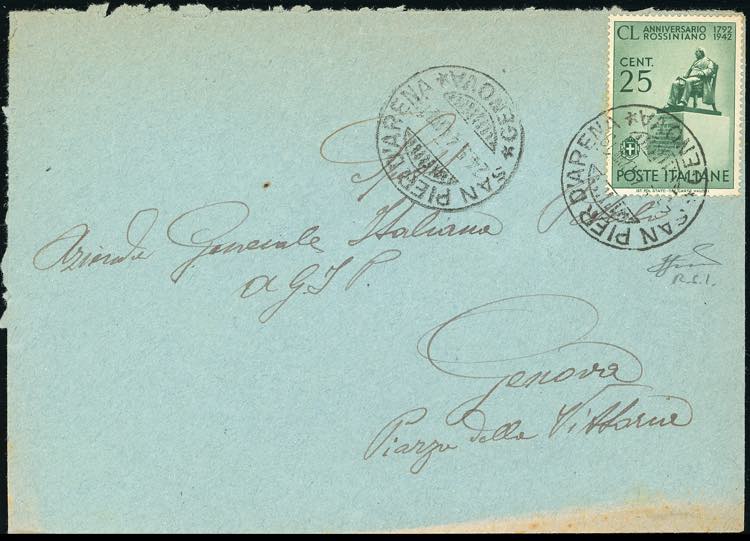 CL ANNIVERSARIO 1792
ROSSINIANO 1942
CENT.
25
POSTE ITALIANE
SAN PIER D'ARENA * GENOVA *
SAN PIER D'ARENA * GENOVA *
Azienda Generale Italiana
AGIP
Genova
Piazza della Vittoria
R.S.I.